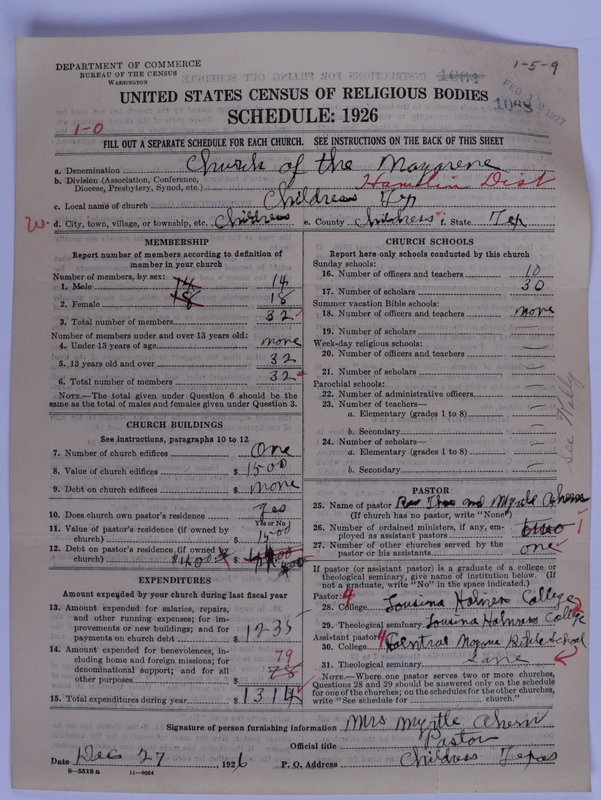 1-5-9
DEPARTMENT OF COMMERCE
BUREAU OF THE CENSUS
WASHINGTON
1084
FEB 1927
1088
UNITED STATES CENSUS OF RELIGIOUS BODIES
SCHEDULE: 1926
1-0
FILL OUT A SEPARATE SCHEDULE FOR EACH CHURCH. SEE INSTRUCTIONS ON THE BACK OF THIS SHEET
a. Denomination Church of the
b. Division (Association, Conference, Diocese, Presbytery, Synod, etc.) Hamlin Dist
c. Local name of church Childress Tex
d. City, town, village, or township, etc. Childress e. County Childress f. State Tex
MEMBERSHIP
Report number of members according to definition of member in your church
Number of members, by sex:
1. Male 14 14
2. Female 18 18
3. Total number of members 32
Number of members under and over 13 years old:
4. Under 13 years of age none
5. 13 years old and over 32
6. Total number of members 32
NOTE.—The total given under Question 6 should be the same as the total of males and females given under Question 3.
CHURCH BUILDINGS
See instructions, paragraphs 10 to 12
7. Number of church edifices One
8. Value of church edifices $ 1500
9. Debt on church edifices $ none
10. Does church own pastor's residence? yes
Yes or No
11. Value of pastor's residence (if owned by church) $ 1500
12. Debt on pastor's residence (if owned by church) $400
EXPENDITURES
Amount expended by your church during last fiscal year
13. Amount expended for salaries, repairs, and other running expenses; for improvements or new buildings; and for payments on church debt $ 1235
14. Amount expended for benevolences, including home and foreign missions; for denominational support; and for all other purposes $ 79
15. Total expenditures during year $ 1314
CHURCH SCHOOLS
Report here only schools conducted by this church
Sunday schools:
16. Number of officers and teachers 10
17. Number of scholars 30
Summer vacation Bible schools:
18. Number of officers and teachers none
19. Number of scholars
Week-day religious schools:
20. Number of officers and teachers
21. Number of scholars
Parochial schools:
22. Number of administrative officers
23. Number of teachers—
a. Elementary (grades 1 to 8)
b. Secondary
24. Number of scholars—
a. Elementary (grades 1 to 8)
b. Secondary
PASTOR
25. Name of pastor Rev Thos and Myrtle Ahern
(If church has no pastor, write "None")
26. Number of ordained ministers, if any, employed as assistant pastors 1
27. Number of other churches served by the pastor or his assistants one
If pastor (or assistant pastor) is a graduate of a college or theological seminary, give name of institution below. (If not a graduate, write "No" in the space indicated.)
Pastor: 4
28. College College
29. Theological seminary College
Assistant pastor: 4
30. College Central Bible School
31. Theological seminary
NOTE.—Where one pastor serves two or more churches, Questions 28 and 29 should be answered only on the schedule for one of the churches; on the schedules for the other churches, write "See schedule for church."
Signature of person furnishing information Mrs Myrtle Ahern
Official title Pastor
Date Dec 27, 1926 P. O. Address Childress Texas
8—5518 a 11—9054